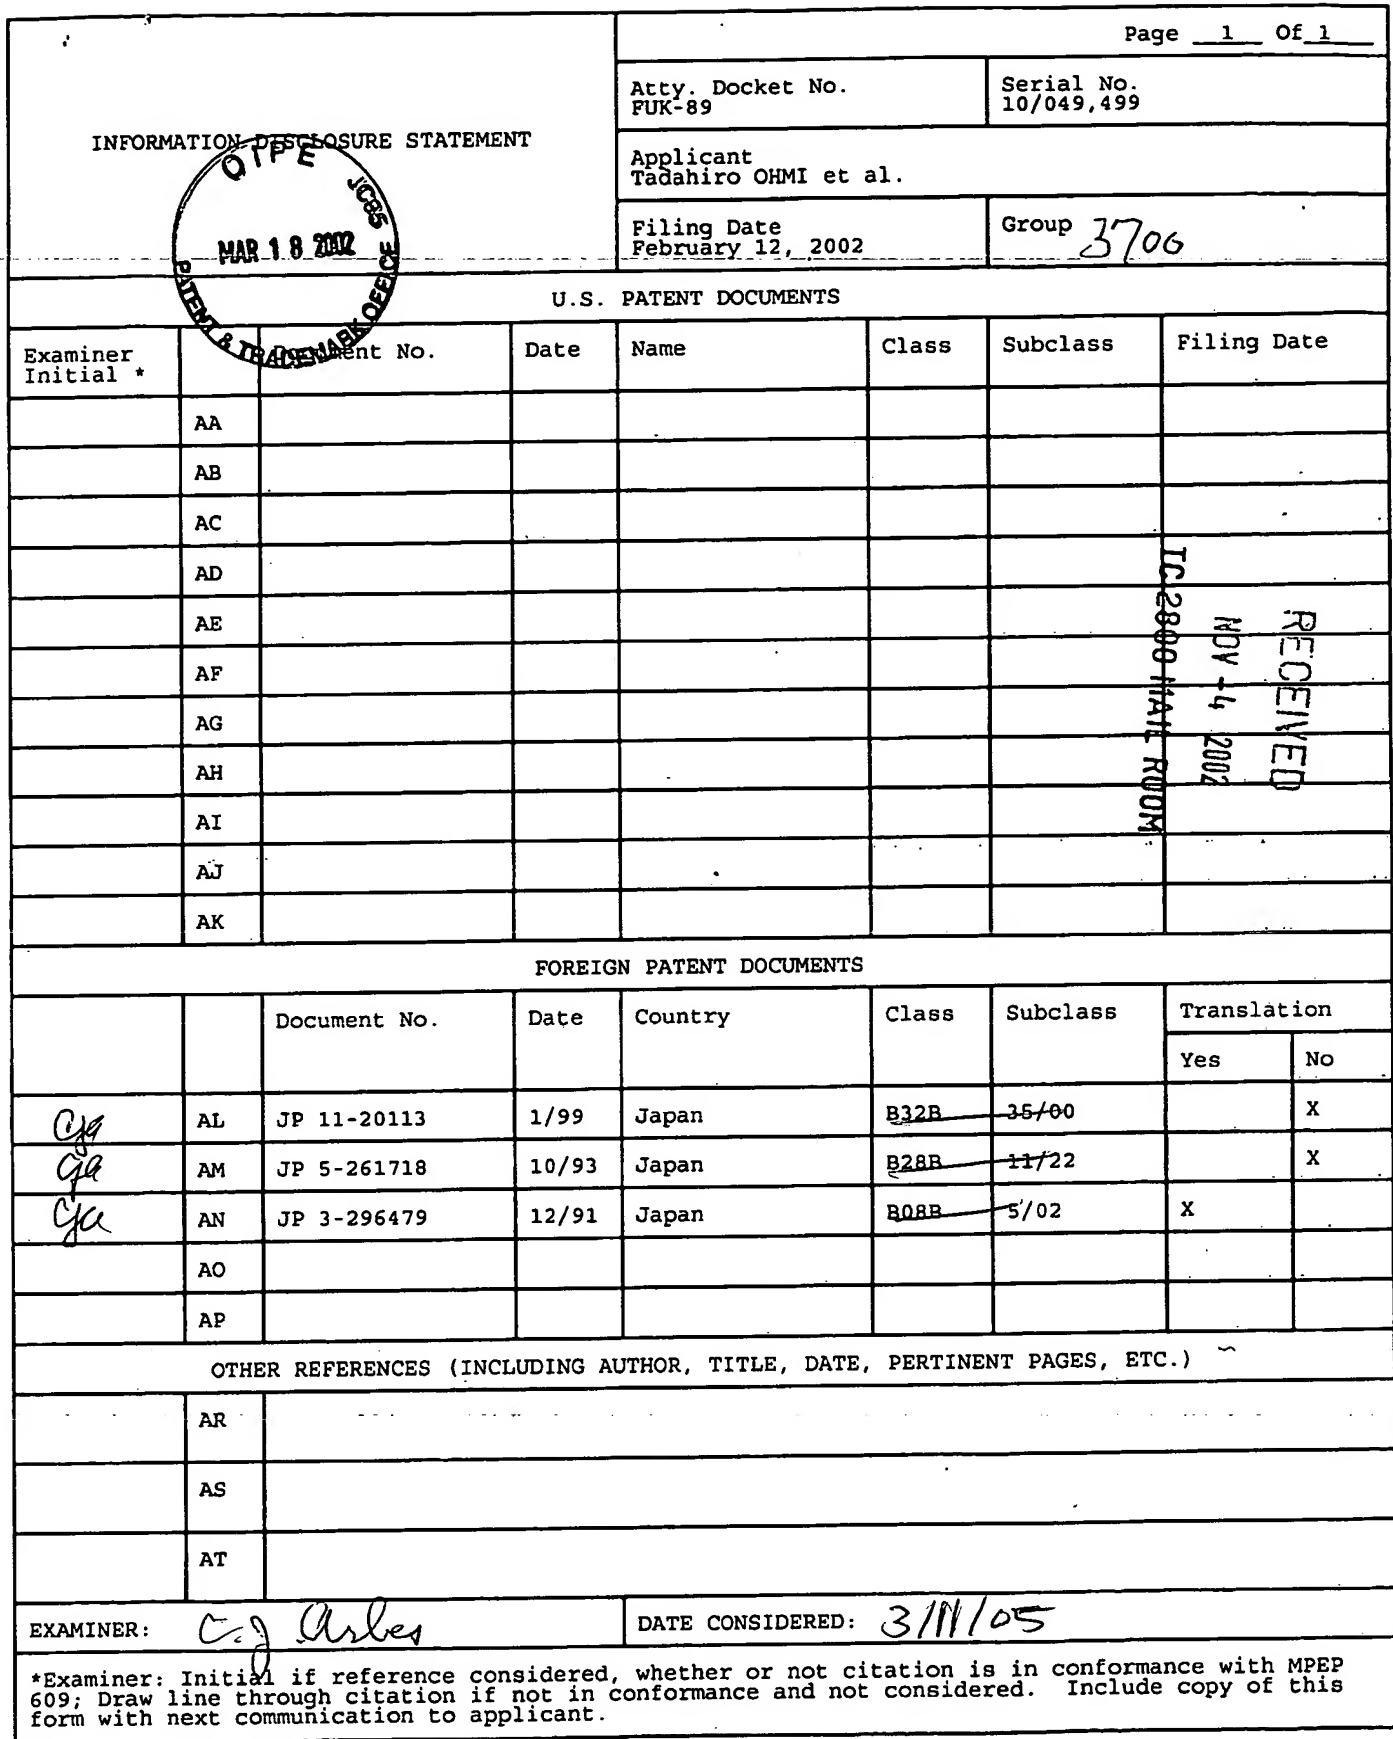 Page 1 Of 1
INFORMATION DISCLOSURE STATEMENT
Atty. Docket No.
FUK-89
Serial No.
10/049,499
Applicant
Tadahiro OHMI et al.
Filing Date
February 12, 2002
Group 3700
OIPE JC85
MAR 18 2002
PATENT & TRADEMARK OFFICE
U.S. PATENT DOCUMENTS
Examiner Initial * Document No. Date Name Class Subclass Filing Date
AA
AB
AC
AD
AE
AF
AG
AH
AI
AJ
AK
RECEIVED
NOV -4 2002
TC 2800 MAIL ROOM
FOREIGN PATENT DOCUMENTS
Document No. Date Country Class Subclass Translation
Yes No
AL JP 11-20113 1/99 Japan B32B 35/00 X
AM JP 5-261718 10/93 Japan B28B 11/22 X
AN JP 3-296479 12/91 Japan B08B 5/02 X
AO
AP
OTHER REFERENCES (INCLUDING AUTHOR, TITLE, DATE, PERTINENT PAGES, ETC.)
AR
AS
AT
EXAMINER: C.J Arbes DATE CONSIDERED:
*Examiner: Initial if reference considered, whether or not citation is in conformance with MPEP
609; Draw line through citation if not in conformance and not considered. Include copy of this
form with next communication to applicant.